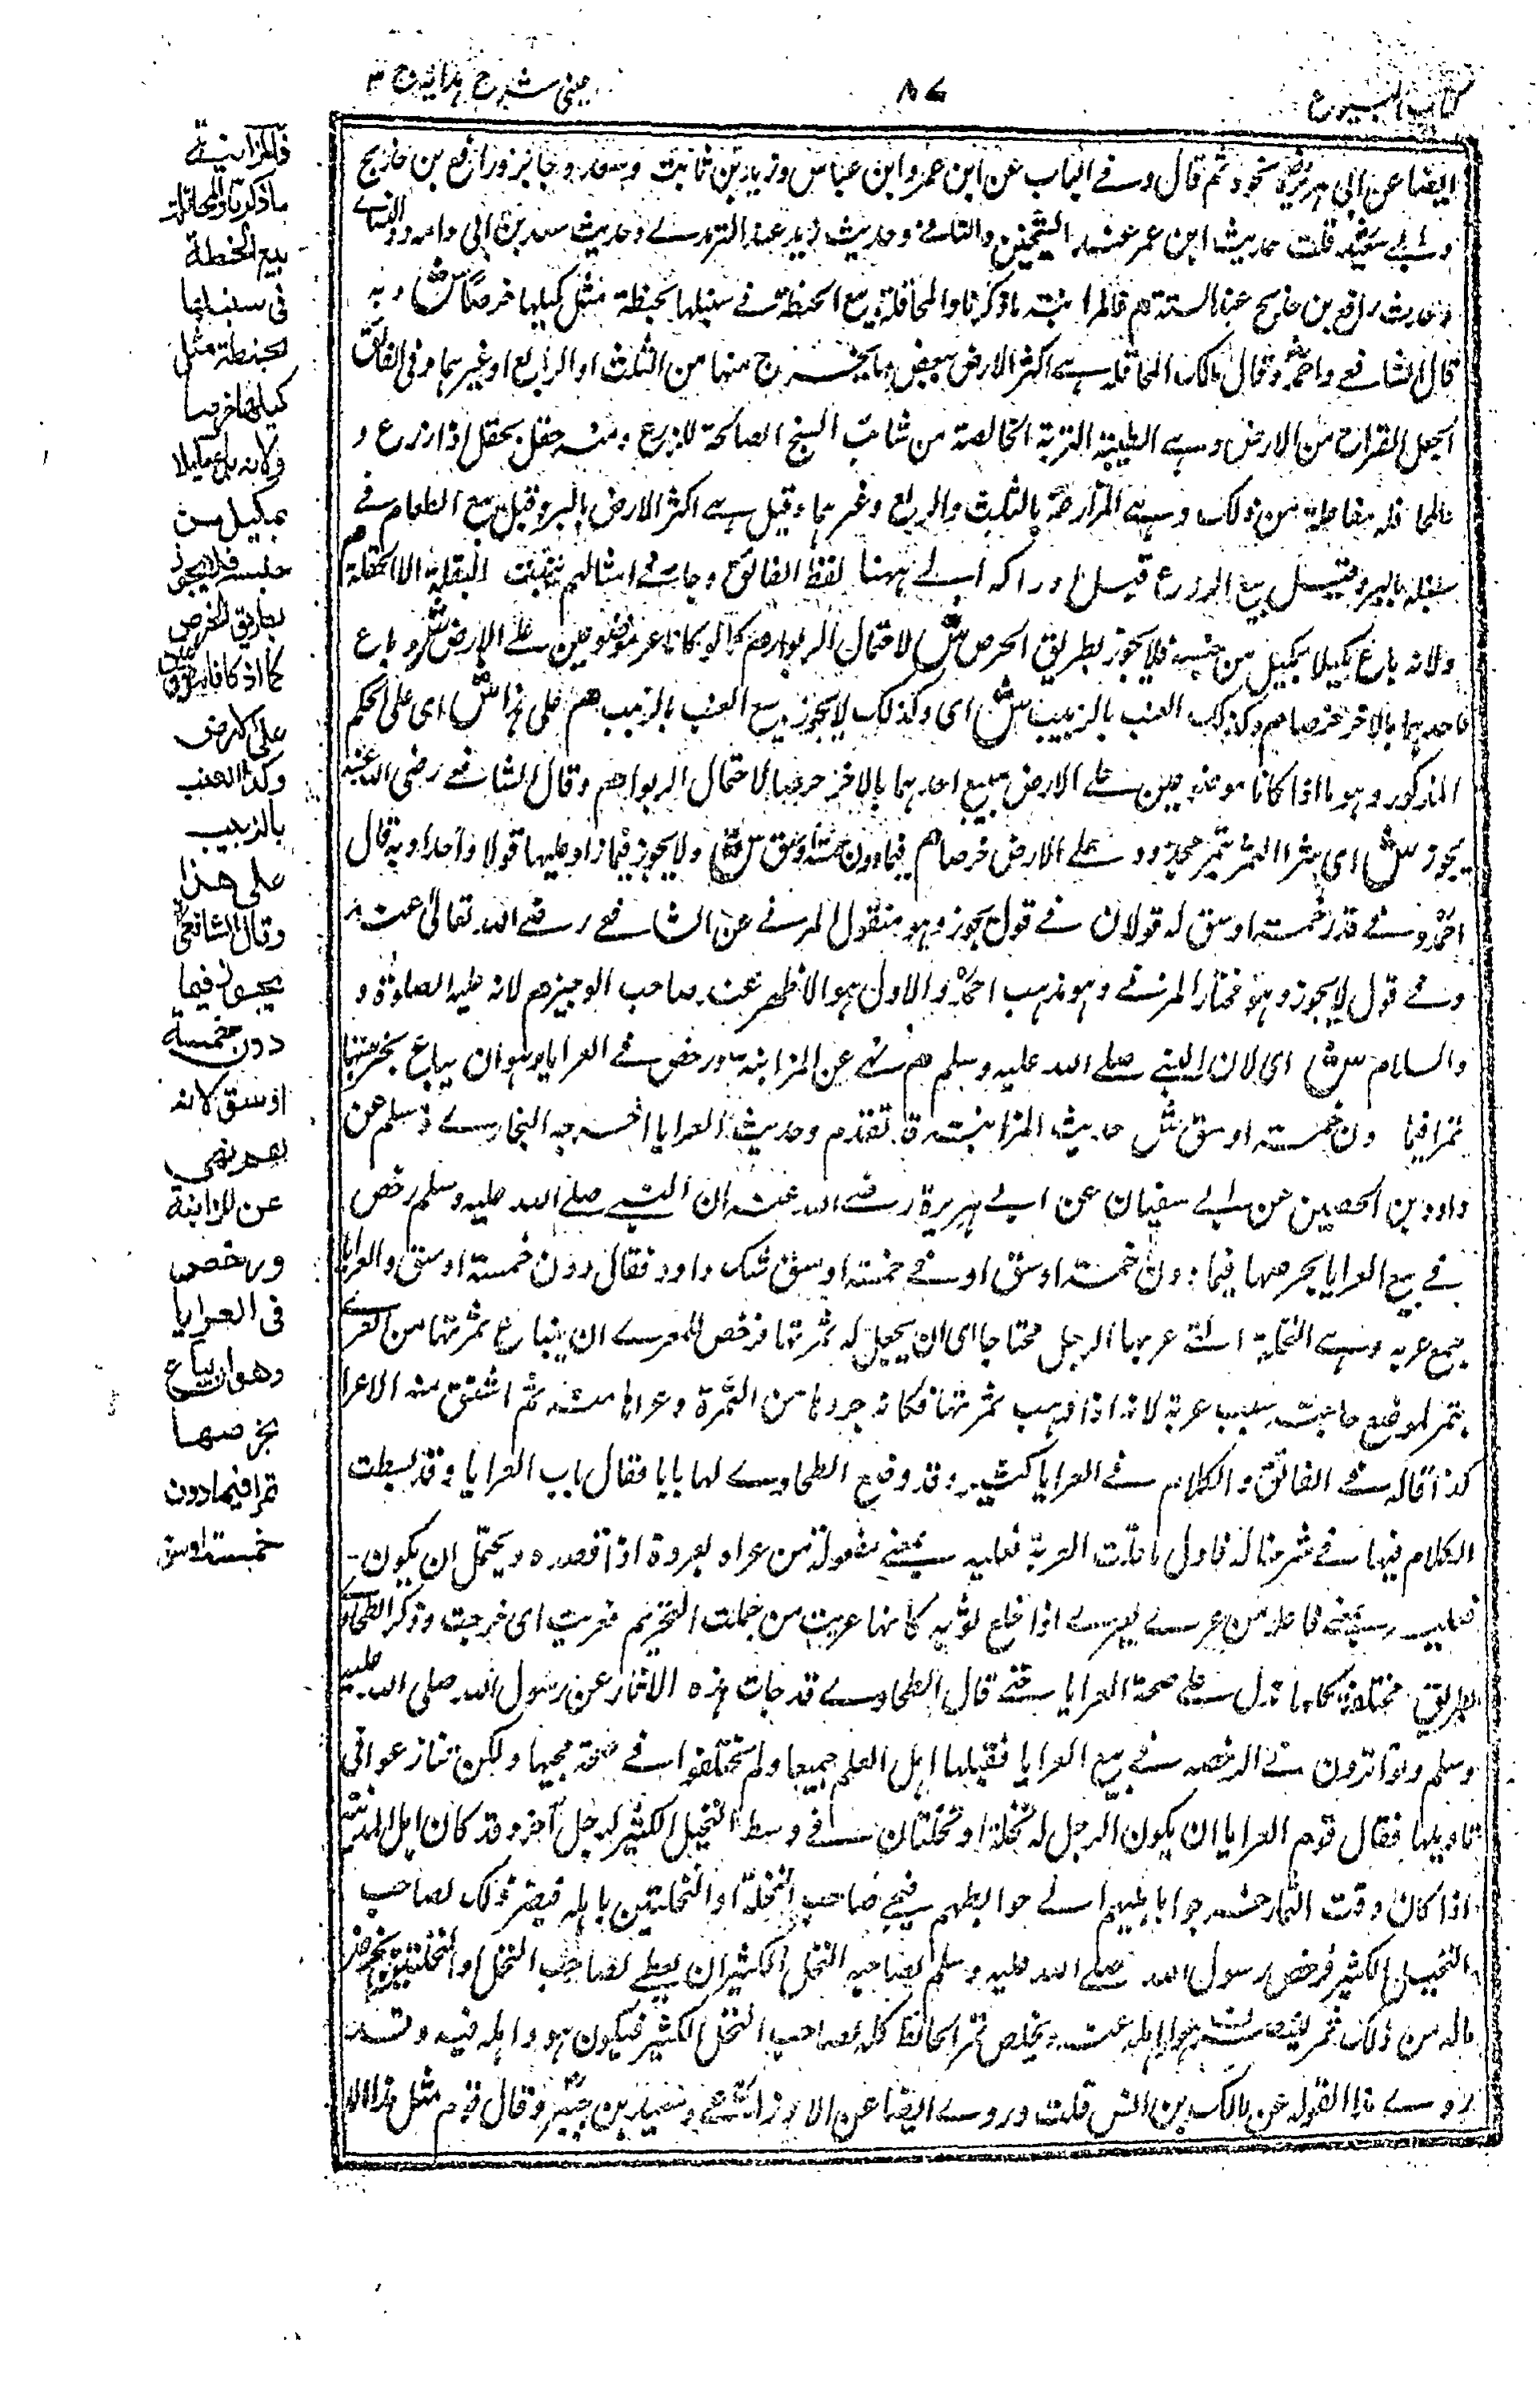 كتاب البيوع
٨٧
عينى شرح هدايه ج ٣
ايضا عن ابى هريرة نحوه ثم قال وفى الباب عن ابن عمر وابن عباس وزيد بن ثابت وسعد وجابر ورافع بن خديج
وابى سعيد قلت حديث ابن عمر عند الشيخين والنسائى وحديث زيد عند الترمذى وحديث سعد بن ابى
وحديث رافع بن خديج عند الستة هم فالمزابنة ما ذكرنا والمحاقلة بيع الحنطة فى سنبلها بحنطة مثل كيلها خرصا ش وبه
قال الشافعى واحمد وقال مالك المحاقلة هى اكثر الارض ببعض ما يخرج منها من الثلث او الربع او غيرهما وفى الفائق
الحقل القراح من الارض وهى الطيبة التربة الخالصة من شائب السبخ الصالحة للزرع ومنه حقل يحقل اذا زرع و
المحاقلة مفاعلة من ذلك وهى المزارعة بالثلث والربع وغيرهما وقيل هى اكثر الارض بالبر وقيل بيع الطعام فى
سنبله بالبر وقيل بيع الزرع قبل ادراكه الى ههنا لفظ الفائق وجاء فى امثالهم تنبت البقلة الا الحقلة هم
ولانه باع مكيلا بمكيل من جنسه فلا يجوز بطريق الخرص ش لاحتمال الربوا هم كما لو كانا موضوعين على الارض ش وباع
احدهما بالاخر خرصا هم وكذلك العنب بالزبيب ش اى وكذلك لا يجوز بيع العنب بالزبيب هم على هذا ش اى على الحكم
المذكور وهو ما اذا كانا موضوعين على الارض يبيع احدهما بالاخر خرصا لاحتمال الربوا هم وقال الشافعى رضى الله عنه
يجوز ش اى شراء الثمر بتمر مجذوذ على الارض خرصا هم فيما دون خمسة اوسق ش ولا يجوز فيما زاد عليها قولا واحدا وبه قال
احمد وفى قدر خمسة اوسق له قولان فى قول يجوز وهو منقول المزنى عن الشافعى رضى الله تعالى عنه
وفى قول لا يجوز وهو مختار المزنى وهو مذهب احمد والاول هو الاظهر عند صاحب الوجيز هم لانه عليه الصلوة و
والسلام ش اى لان النبى صلى الله عليه وسلم هم نهى عن المزابنة ورخص فى العرايا وهو ان يباع بخرصها
تمرا فيما دون خمسة اوسق ش حديث المزابنة قد تقدم وحديث العرايا اخرجه البخارى ومسلم عن
داود بن الحصين عن ابى سفيان عن ابى هريرة رضى الله عنه ان النبى صلى الله عليه وسلم رخص
فى بيع العرايا بخرصها فيما دون خمسة اوسق او فى خمسة اوسق شك داود فقال دون خمسة اوسق والعرايا
جمع عرية وهى النخلة التى عريها الرجل محتاجا اى ان يجعل له ثمرتها فرخص للمعرى ان يبتاع ثمرتها من المعرى
بتمر لموضع حاجته سبب عرية لانه اذا وهب ثمرتها فكانه جردها من الثمرة وعراها منه ثم اشتق منه الاعرا
كذا قاله فى الفائق والكلام فى العرايا كثير وقد وضع الطحاوى لها بابا فقال باب العرايا وقد بسطت
الكلام فيها فى شرحنا له فاول ما قلت العرية فعلية بمعنى مفعولة من عراه يعروه اذا قصده ويحتمل ان يكون
فعلية بمعنى فاعلة من عرى يعرى اذا خلع ثوبه كانها عريت من جملة التحريم فعريت اى خرجت وذكر الطحاوى
بطريق مختلفة كلها تدل على صحة العرايا قال الطحاوى قد جاءت هذه الاثار عن رسول الله صلى الله عليه
وسلم وتواترت فى الرخصة فى بيع العرايا فقبلها اهل العلم جميعا ولم يختلفوا فى صحة مجيئها ولكن تنازعوا فى
تاويلها فقال قوم العرايا ان يكون الرجل له نخلة او نخلتان فى وسط النخيل الكثير لرجل آخر وقد كان اهل المدينة
اذا كان وقت الثمار خرجوا باهليهم الى حوائطهم فيجئ صاحب النخلة او النخلتين باهله فيضر ذلك لصاحب
النخيل الكثير فرخص رسول الله صلى الله عليه وسلم لصاحب النخل الكثير ان يعطى لصاحب النخل او النخلتين خرص
ماله من ذلك تمر لينصرف هو واهله عنه ويخلص تمر الحائط كله لصاحب النخل الكثير فيكون هو واهله فيه وقد
روى هذا القول عن مالك بن انس قلت وروى ايضا عن الاوزاعى وسعيد بن جبير وقال قوم مثل هذا الا
فالمزابنة
ما ذكرنا والمحاقلة
بيع الحنطة
فى سنبلها
بحنطة مثل
كيلها خرصا
ولانه باع مكيلا
بمكيل من
جنسه فلا يجوز
بطريق الخرص
كما اذا كانا موضوعين
على الارض
وكذا العنب
بالزبيب
على هذا
وقال الشافعى
يجوز فيما
دون خمسة
اوسق لانه
عم نهى
عن المزابنة
ورخص
فى العرايا
وهو ان يباع
بخرصها
تمرا فيما دون
خمسة اوسق